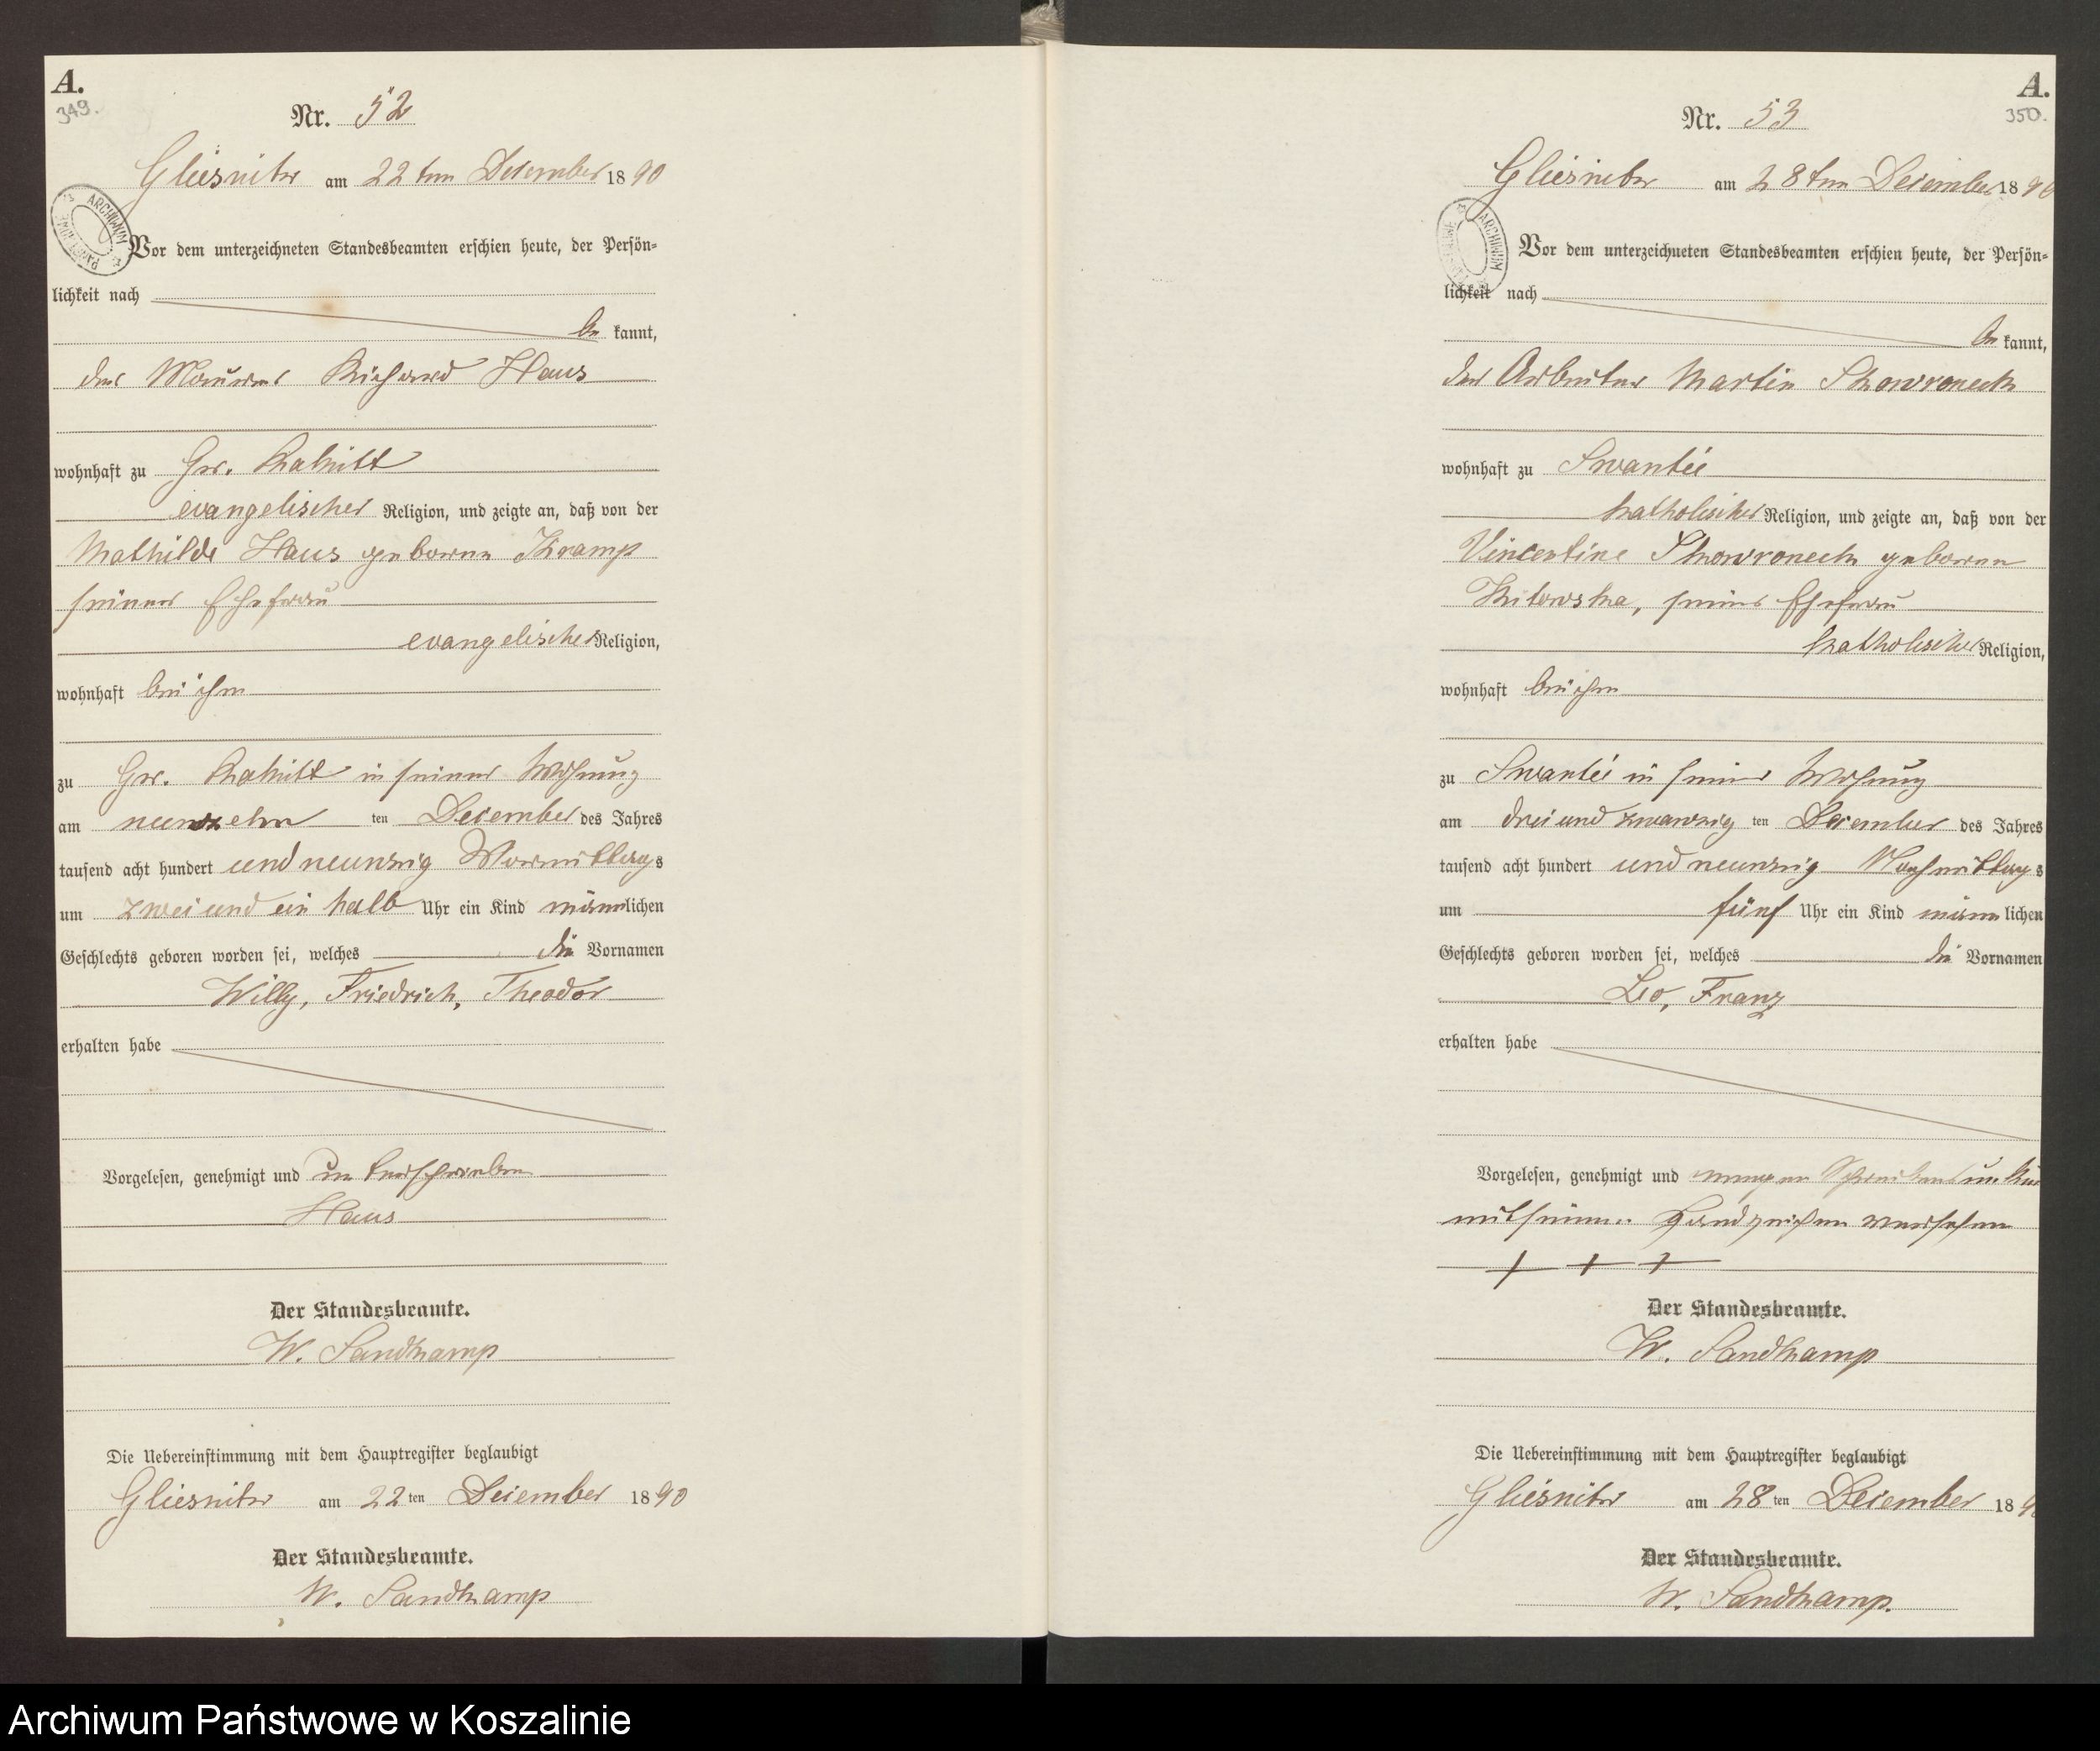 A.
349.
Nr. 52
Gliesnitz am 22ten Dezember 1890
ARCHIWUM
Vor dem unterzeichneten Standesbeamten erschien heute, der Persön-
lichkeit nach
be kannt,
der Maurer Richard Haus
wohnhaft zu Gr. Rakitt
evangelischer Religion, und zeigte an, daß von der
Mathilde Haus geborene Kramp
seiner Ehefrau
evangelischer Religion,
wohnhaft bei ihm
zu Gr. Rakitt in seiner Wohnung
am neunzehn ten Dezember des Jahres
tausend acht hundert und neunzig Vormittags
um zwei und ein halb Uhr ein Kind männlichen
Geschlechts geboren worden sei, welches die Vornamen
Willy, Friedrich, Theodor
erhalten habe
Vorgelesen, genehmigt und unterschrieben
Haus
Der Standesbeamte.
W. Sandkamp
Die Uebereinstimmung mit dem Hauptregister beglaubigt
Gliesnitz am 22ten Dezember 1890
Der Standesbeamte.
W. Sandkamp
A.
350.
Nr. 53
Gliesnitz am 28ten Dezember 1890
ARCHIWUM
Vor dem unterzeichneten Standesbeamten erschien heute, der Persön-
lichkeit nach
be kannt,
der Arbeiter Martin Skowroneck
wohnhaft zu Swantee
katholischer Religion, und zeigte an, daß von der
Vincentine Skowroneck geborene
Kitowska, seiner Ehefrau
katholischer Religion,
wohnhaft bei ihm
zu Swantee in seiner Wohnung
am drei und zwanzig ten Dezember des Jahres
tausend acht hundert und neunzig Nachmittags
um fünf Uhr ein Kind männlichen
Geschlechts geboren worden sei, welches die Vornamen
Leo, Franz
erhalten habe
Vorgelesen, genehmigt und wegen Schreibensunkunde
mit seinem Handzeichen versehen
+ + +
Der Standesbeamte.
W. Sandkamp
Die Uebereinstimmung mit dem Hauptregister beglaubigt
Gliesnitz am 28ten Dezember 1890
Der Standesbeamte.
W. Sandkamp.
Archiwum Państwowe w Koszalinie